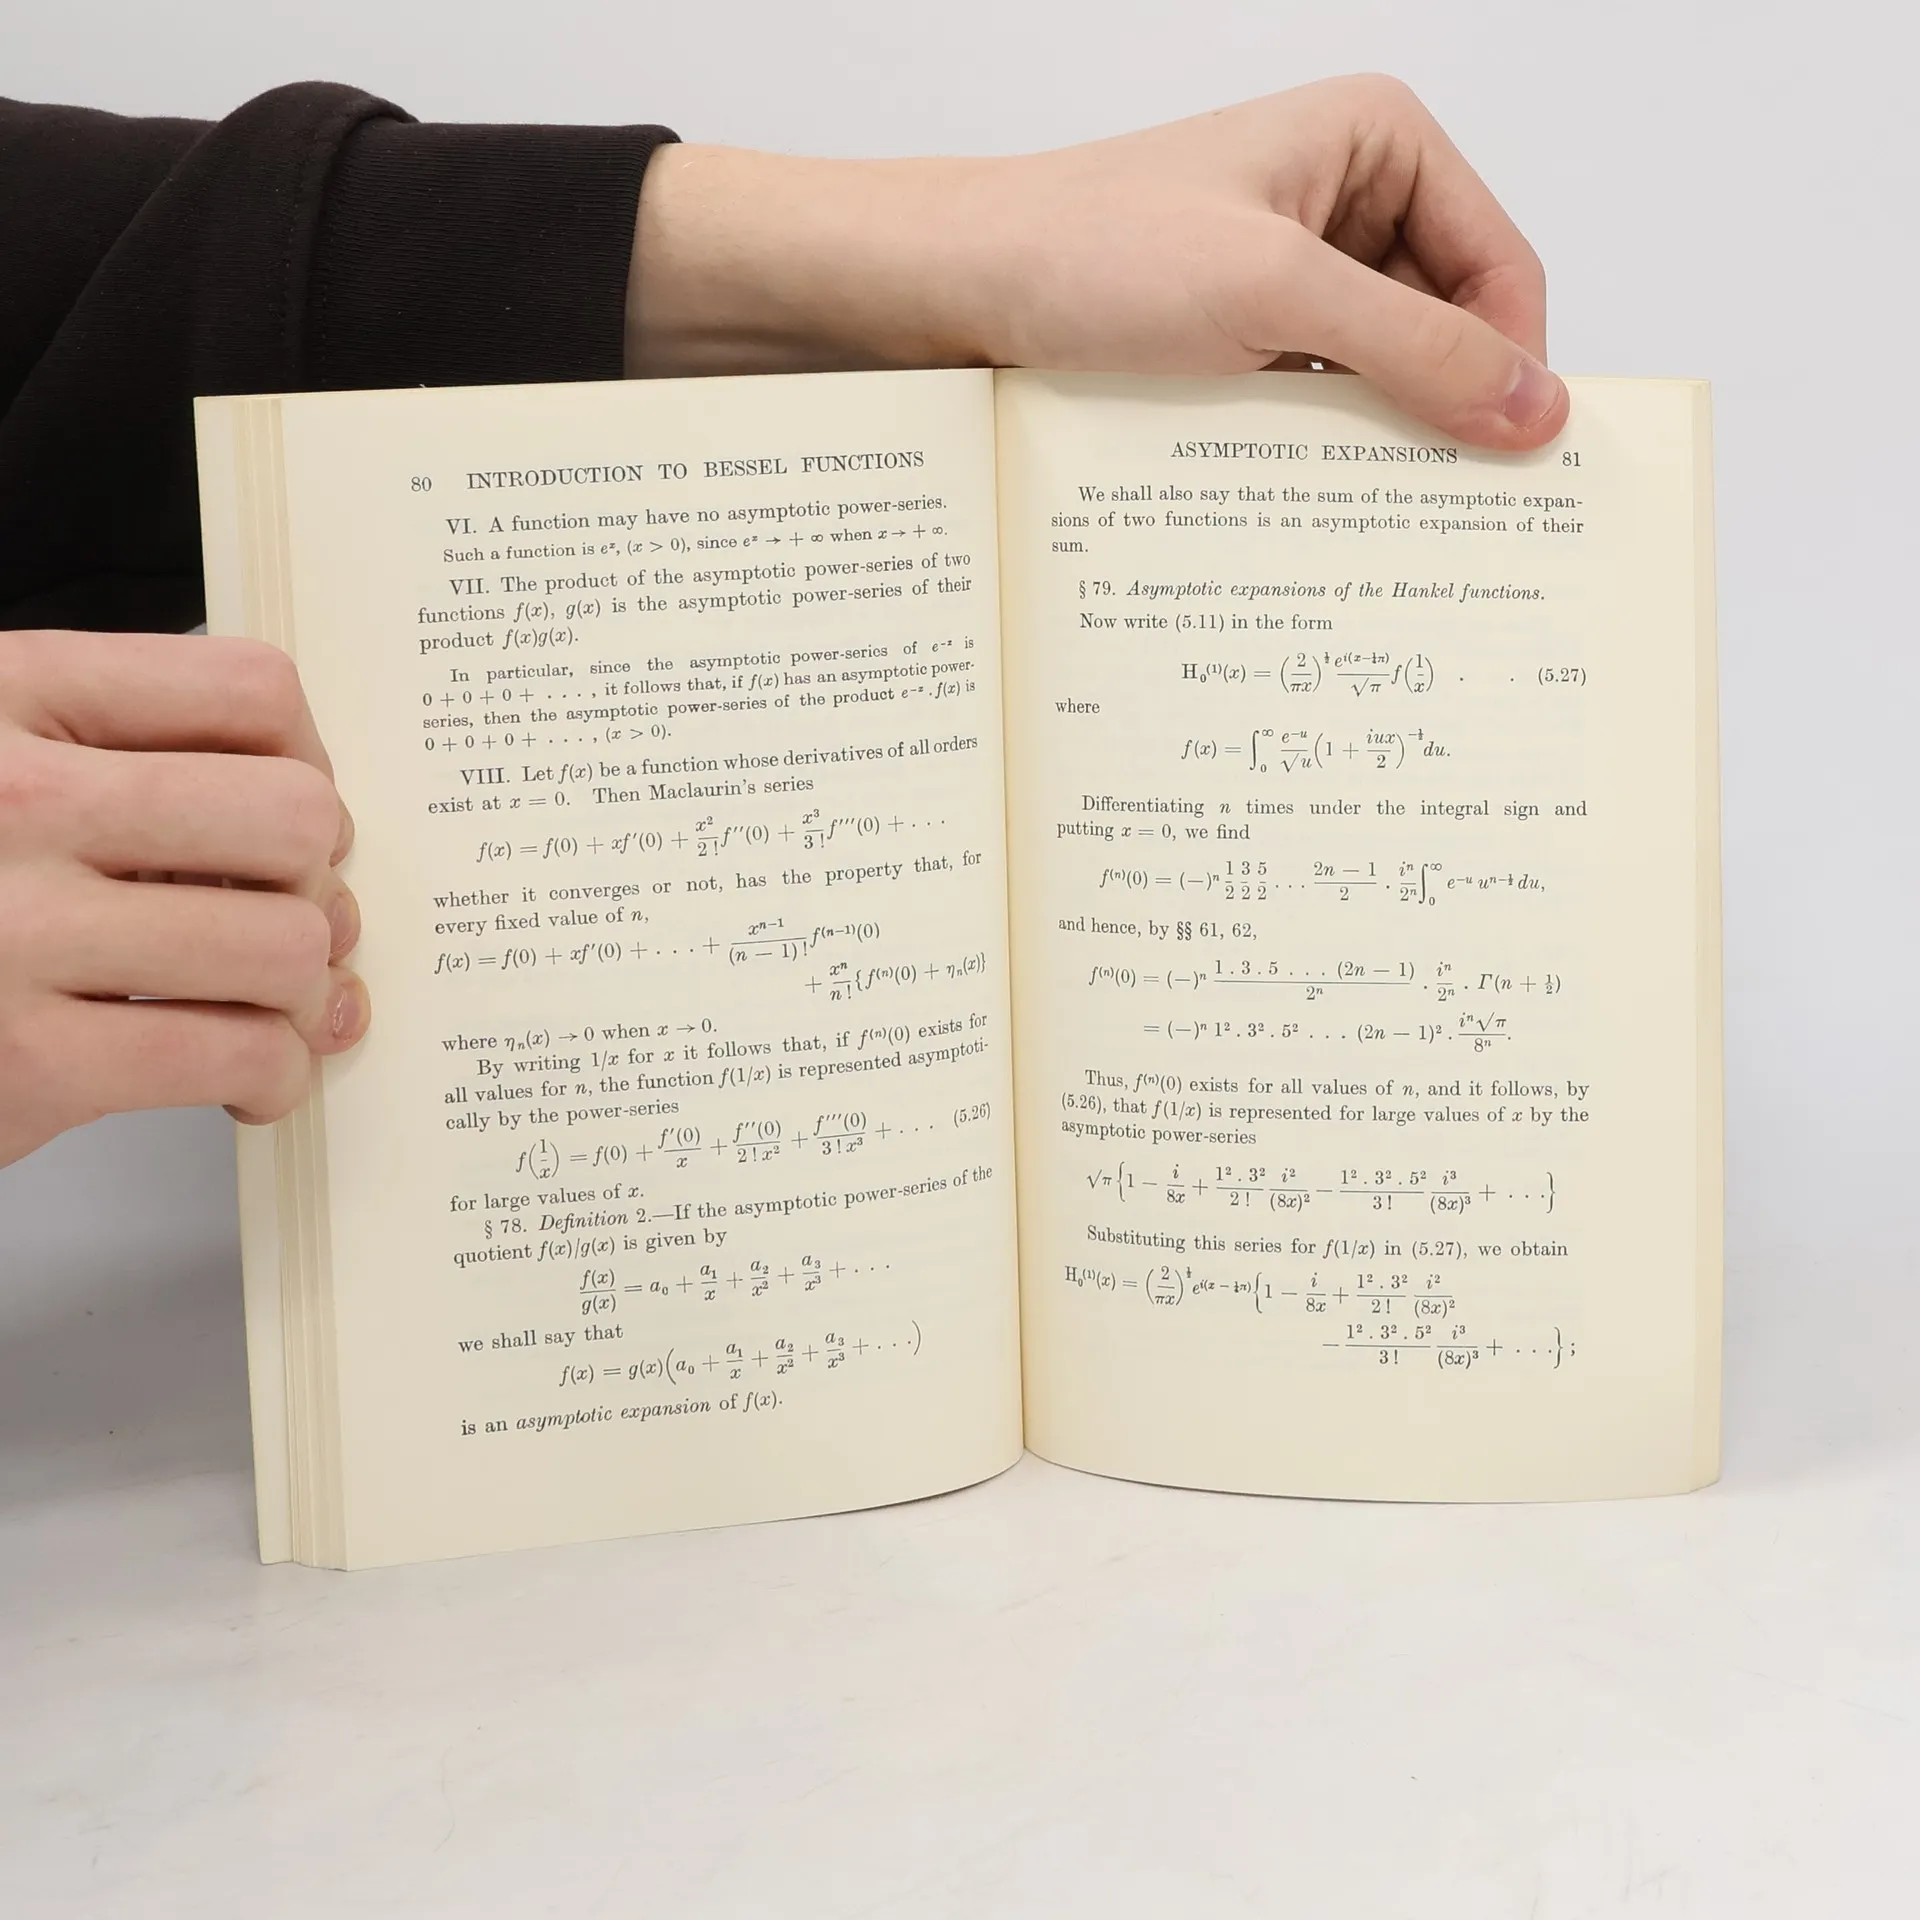 80 INTRODUCTION TO BESSEL FUNCTIONS
VI. A function may have no asymptotic power-series.
Such a function is eˣ, (x > 0), since eˣ → + ∞ when x → + ∞.
VII. The product of the asymptotic power-series of two
functions f(x), g(x) is the asymptotic power-series of their
product f(x)g(x).
In particular, since the asymptotic power-series of e⁻ˣ is
0 + 0 + 0 + . . . , it follows that, if f(x) has an asymptotic power-
series, then the asymptotic power-series of the product e⁻ˣ . f(x) is
0 + 0 + 0 + . . . , (x > 0).
VIII. Let f(x) be a function whose derivatives of all orders
exist at x = 0. Then Maclaurin's series
f(x) = f(0) + xf′(0) + x²/2! f″(0) + x³/3! f‴(0) + . . .
whether it converges or not, has the property that, for
every fixed value of n,
f(x) = f(0) + xf′(0) + . . . + xⁿ⁻¹/(n − 1)! f⁽ⁿ⁻¹⁾(0)
+ xⁿ/n! {f⁽ⁿ⁾(0) + ηₙ(x)}
where ηₙ(x) → 0 when x → 0.
By writing 1/x for x it follows that, if f⁽ⁿ⁾(0) exists for
all values for n, the function f(1/x) is represented asymptoti-
cally by the power-series
f(1/x) = f(0) + f′(0)/x + f″(0)/2! x² + f‴(0)/3! x³ + . . . (5.26)
for large values of x.
§ 78. Definition 2.—If the asymptotic power-series of the
quotient f(x)/g(x) is given by
f(x)/g(x) = a₀ + a₁/x + a₂/x² + a₃/x³ + . . .
we shall say that
f(x) = g(x)(a₀ + a₁/x + a₂/x² + a₃/x³ + . . .)
is an asymptotic expansion of f(x).
ASYMPTOTIC EXPANSIONS 81
We shall also say that the sum of the asymptotic expan-
sions of two functions is an asymptotic expansion of their
sum.
§ 79. Asymptotic expansions of the Hankel functions.
Now write (5.11) in the form
H₀⁽¹⁾(x) = (2/πx)^½ e^{i(x−¼π)}/√π f(1/x) . . (5.27)
where
f(x) = ∫₀^∞ e⁻ᵘ/√u (1 + iux/2)^{−½} du.
Differentiating n times under the integral sign and
putting x = 0, we find
f⁽ⁿ⁾(0) = (−)ⁿ 1/2 3/2 5/2 . . . (2n − 1)/2 . iⁿ/2ⁿ ∫₀^∞ e⁻ᵘ u^{n−½} du,
and hence, by §§ 61, 62,
f⁽ⁿ⁾(0) = (−)ⁿ 1 . 3 . 5 . . . (2n − 1)/2ⁿ . iⁿ/2ⁿ . Γ(n + ½)
= (−)ⁿ 1² . 3² . 5² . . . (2n − 1)² . iⁿ√π/8ⁿ.
Thus, f⁽ⁿ⁾(0) exists for all values of n, and it follows, by
(5.26), that f(1/x) is represented for large values of x by the
asymptotic power-series
√π {1 − i/8x + 1² . 3²/2! i²/(8x)² − 1² . 3² . 5²/3! i³/(8x)³ + . . .}
Substituting this series for f(1/x) in (5.27), we obtain
H₀⁽¹⁾(x) = (2/πx)^½ e^{i(x − ¼π)} {1 − i/8x + 1² . 3²/2! i²/(8x)²
− 1² . 3² . 5²/3! i³/(8x)³ + . . .} ;